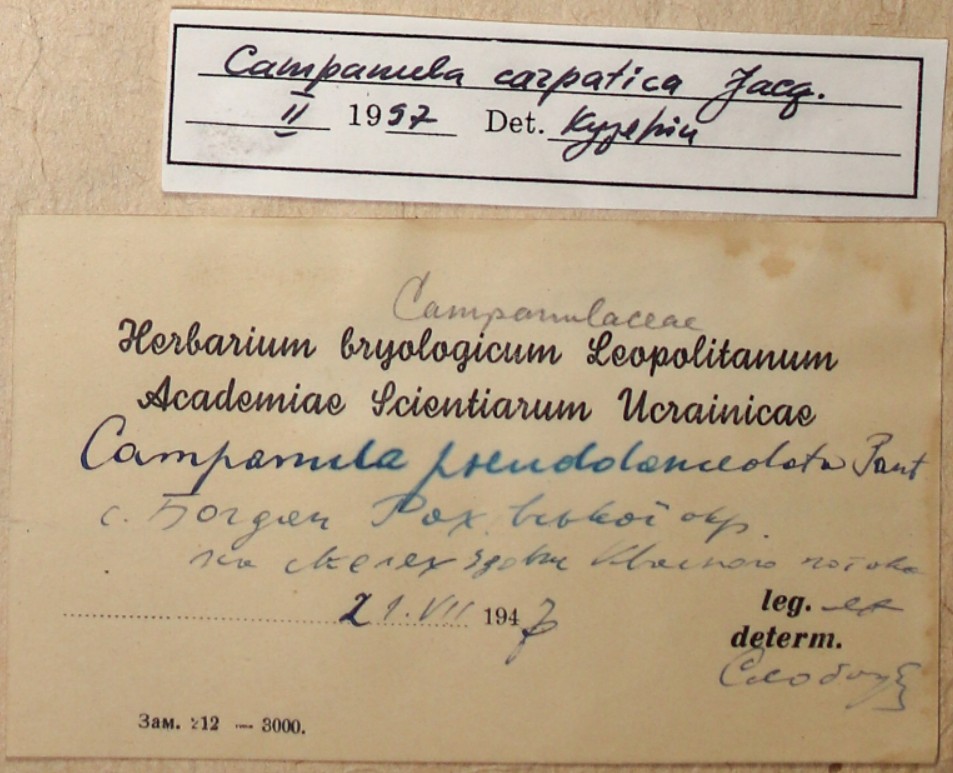 Campanula carpatica Jacq.
II 1997 Det. Кузярін
Campanulaceae
Herbarium bryologicum Leopolitanum
Academiae Scientiarum Ucrainicae
Campanula pseudolanceolata Pant
с. Богдан Рахівської окр.
на скелях здовж Квасного потока
21.VII 1947 leg. et
determ.
Слободян
Зам. 212 — 3000.